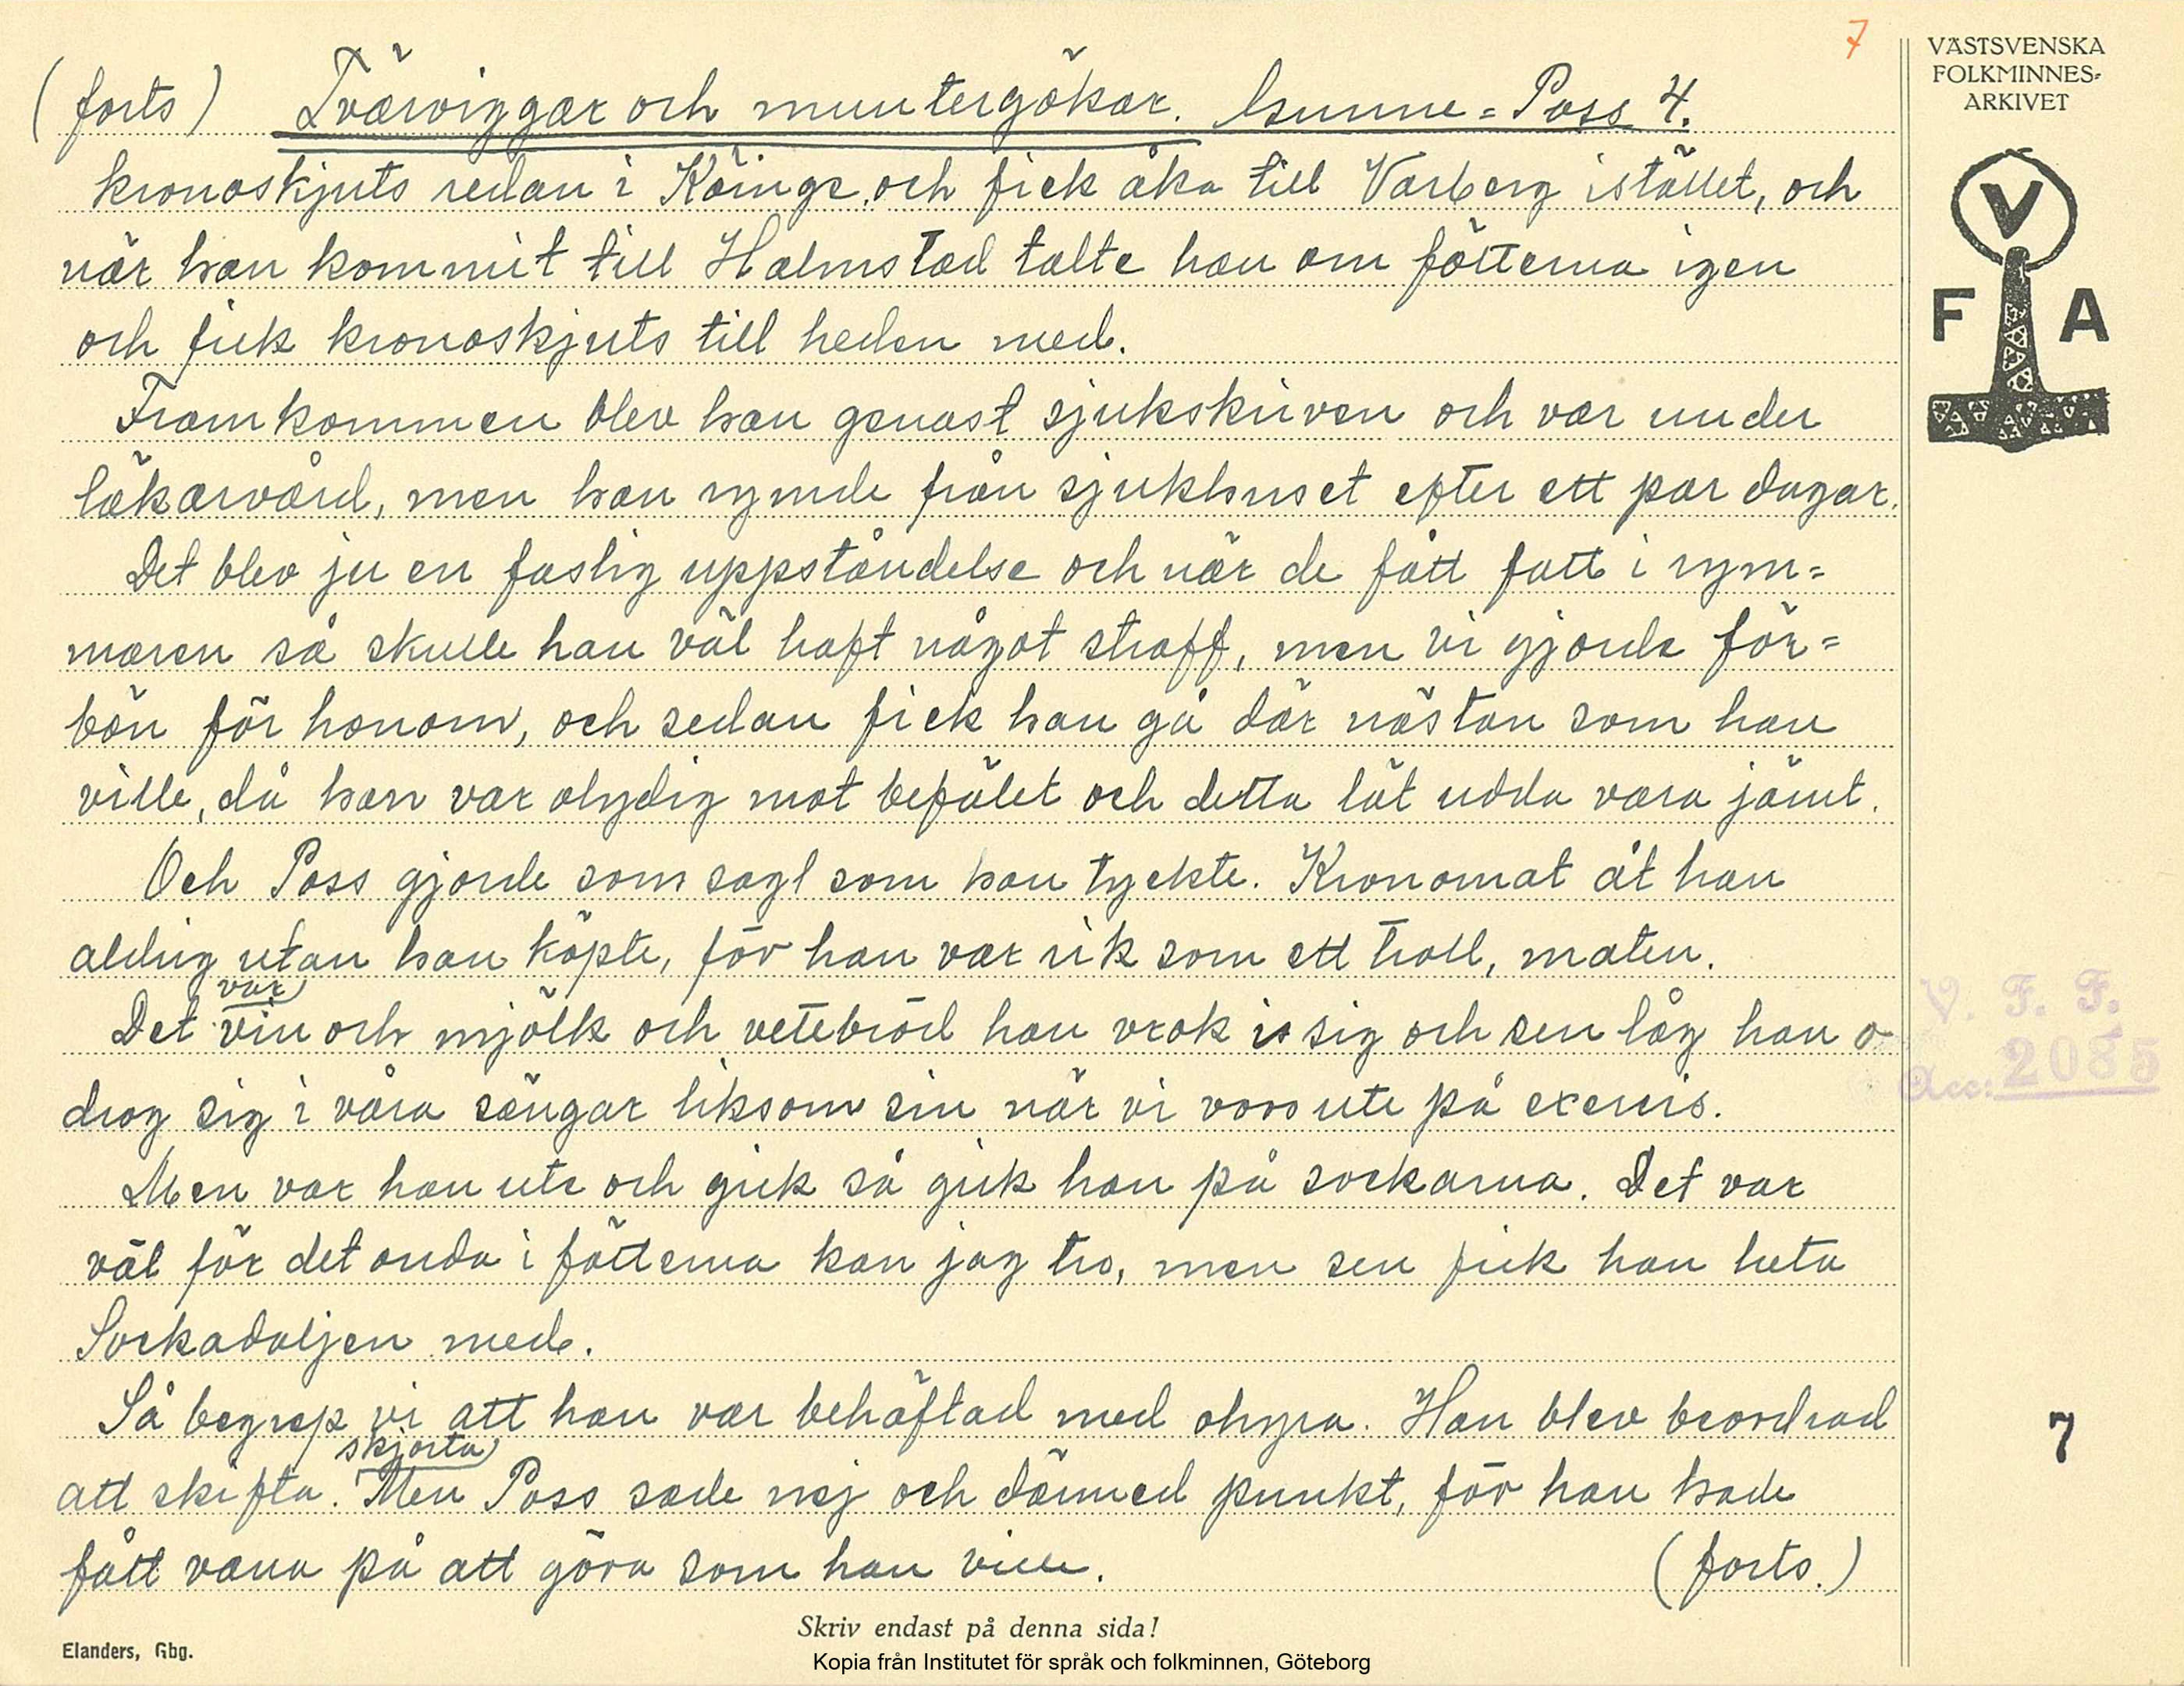 7
VÄSTSVENSKA
FOLKMINNES-
ARKIVET
V
F A
(forts) Tvärviggar och muntergökar. Gunne=Poss 4.
kronoskjuts redan i Köinge, och fick åka till Varberg istället, och
när han kommit till Halmstad talte han om fötterna igen
och fick kronoskjuts till heden med.
Framkommen blev han genast sjukskriven och var under
läkarvård, men han rymde från sjukhuset efter ett par dagar.
Det blev ju en faslig uppståndelse och när de fått fatt i rym=
maren så skulle han väl haft något straff, men vi gjorde för=
bön för honom, och sedan fick han gå där nästan som han
ville, då han var olydig mot befälet och detta lät udda vara jämt.
Och Poss gjorde som sagt som han tyckte. Kronomat åt han
aldrig utan han köpte, för han var rik som ett troll, maten.
var
Det vin och mjölk och vetebröd han vrok i sig och sen låg han o
drog sig i våra sängar liksom sin när vi voro ute på exercis.
Men var han ute och gick så gick han på sockarna. Det var
väl för det onda i fötterna kan jag tro, men sen fick han heta
Sockadaljen med.
Så begrep vi att han var behäftad med ohyra. Han blev beordrad
skjorta
att skifta. Men Poss sade nej och därmed punkt, för han hade
fått vana på att göra som han ville. (forts.)
V. F. F.
Acc: 2085
7
Skriv endast på denna sida!
Elanders, Gbg.
Kopia från Institutet för språk och folkminnen, Göteborg